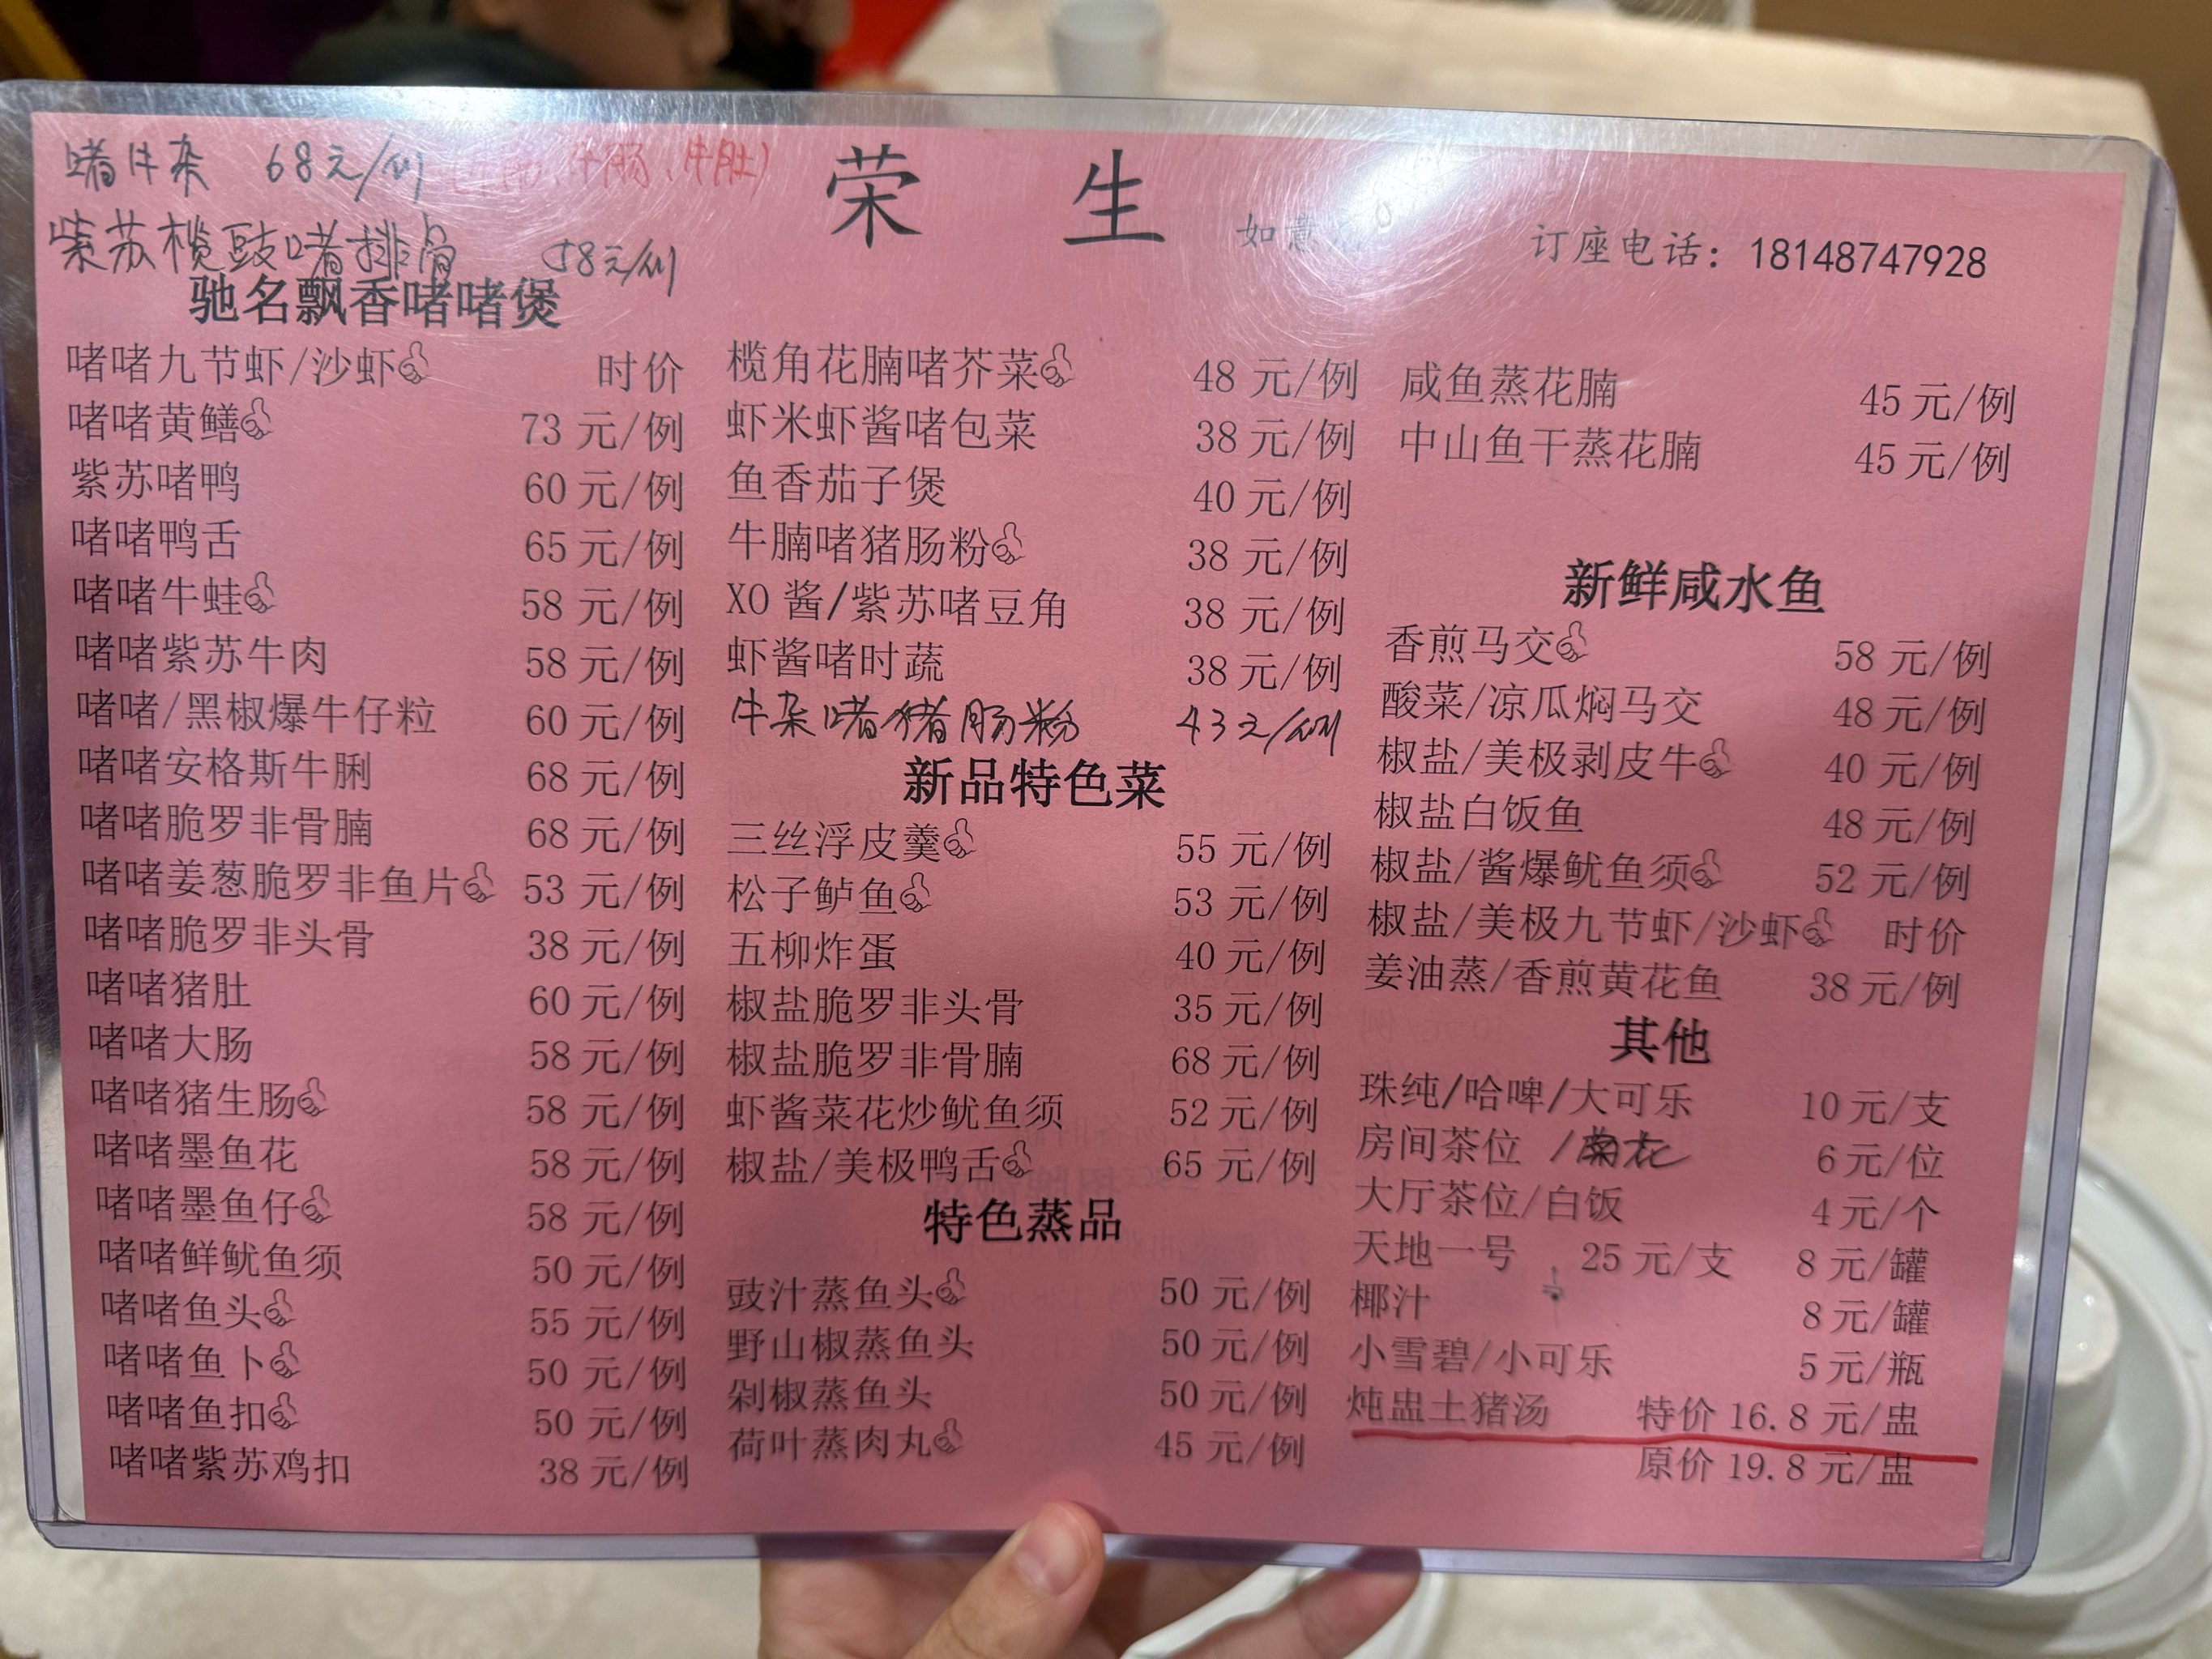 啫牛杂 68元/例 牛肠、牛肚)
荣生
如意
订座电话：18148747928
紫苏榄豉啫排骨 58元/例
驰名飘香啫啫煲
啫啫九节虾/沙虾 时价
啫啫黄鳝 73元/例
紫苏啫鸭 60元/例
啫啫鸭舌 65元/例
啫啫牛蛙 58元/例
啫啫紫苏牛肉 58元/例
啫啫/黑椒爆牛仔粒 60元/例
啫啫安格斯牛脷 68元/例
啫啫脆罗非骨腩 68元/例
啫啫姜葱脆罗非鱼片 53元/例
啫啫脆罗非头骨 38元/例
啫啫猪肚 60元/例
啫啫大肠 58元/例
啫啫猪生肠 58元/例
啫啫墨鱼花 58元/例
啫啫墨鱼仔 58元/例
啫啫鲜鱿鱼须 50元/例
啫啫鱼头 55元/例
啫啫鱼卜 50元/例
啫啫鱼扣 50元/例
啫啫紫苏鸡扣 38元/例
榄角花腩啫芥菜 48元/例
虾米虾酱啫包菜 38元/例
鱼香茄子煲 40元/例
牛腩啫猪肠粉 38元/例
XO酱/紫苏啫豆角 38元/例
虾酱啫时蔬 38元/例
牛杂啫猪肠粉 43元/例
新品特色菜
三丝浮皮羹 55元/例
松子鲈鱼 53元/例
五柳炸蛋 40元/例
椒盐脆罗非头骨 35元/例
椒盐脆罗非骨腩 68元/例
虾酱菜花炒鱿鱼须 52元/例
椒盐/美极鸭舌 65元/例
特色蒸品
豉汁蒸鱼头 50元/例
野山椒蒸鱼头 50元/例
剁椒蒸鱼头 50元/例
荷叶蒸肉丸 45元/例
咸鱼蒸花腩 45元/例
中山鱼干蒸花腩 45元/例
新鲜咸水鱼
香煎马交 58元/例
酸菜/凉瓜焖马交 48元/例
椒盐/美极剥皮牛 40元/例
椒盐白饭鱼 48元/例
椒盐/酱爆鱿鱼须 52元/例
椒盐/美极九节虾/沙虾 时价
姜油蒸/香煎黄花鱼 38元/例
其他
珠纯/哈啤/大可乐 10元/支
房间茶位 /菊花 6元/位
大厅茶位/白饭 4元/个
天地一号 25元/支 8元/罐
椰汁 8元/罐
小雪碧/小可乐 5元/瓶
炖盅土猪汤 特价16.8元/盅
原价19.8元/盅